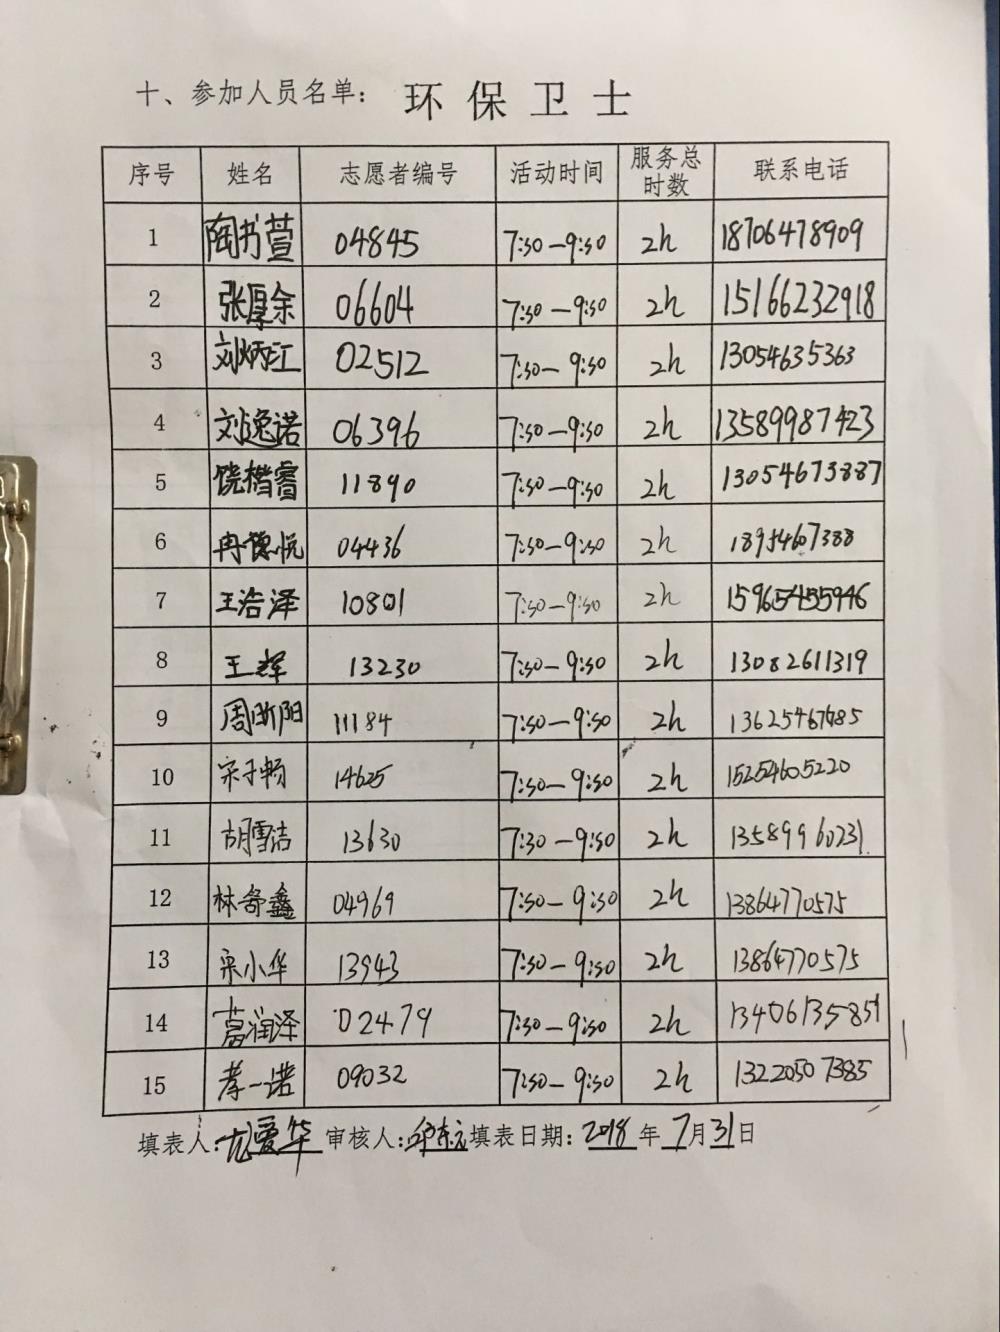 十、参加人员名单： 环保卫士
序号 姓名 志愿者编号 活动时间 服务总时数 联系电话
1 陶书萱 04845 7:30—9:30 2h 18706478909
2 张厚余 06604 7:30—9:30 2h 15166232918
3 刘炳江 02512 7:30—9:30 2h 13054635363
4 刘逸诺 06396 7:30—9:30 2h 13589987423
5 饶楷睿 11890 7:30—9:30 2h 13054673887
6 冉德悦 04436 7:30—9:30 2h 18954607388
7 王浩泽 10801 7:30—9:30 2h 15965455946
8 王辉 13230 7:30—9:30 2h 13082611319
9 周浙阳 11184 7:30—9:30 2h
10 宋子畅 14625 7:30—9:30 2h 15254605220
11 胡雪洁 13630 7:30—9:30 2h 13589960231
12 林奇鑫 04969 7:30—9:30 2h 13864770575
13 宋小华 13943 7:30—9:30 2h 13864770575
14 葛润泽 02479 7:30—9:30 2h 13406135851
15 孝一诺 09032 7:30—9:30 2h 13220507385
填表人：尤爱华 审核人： 填表日期：2018年7月31日